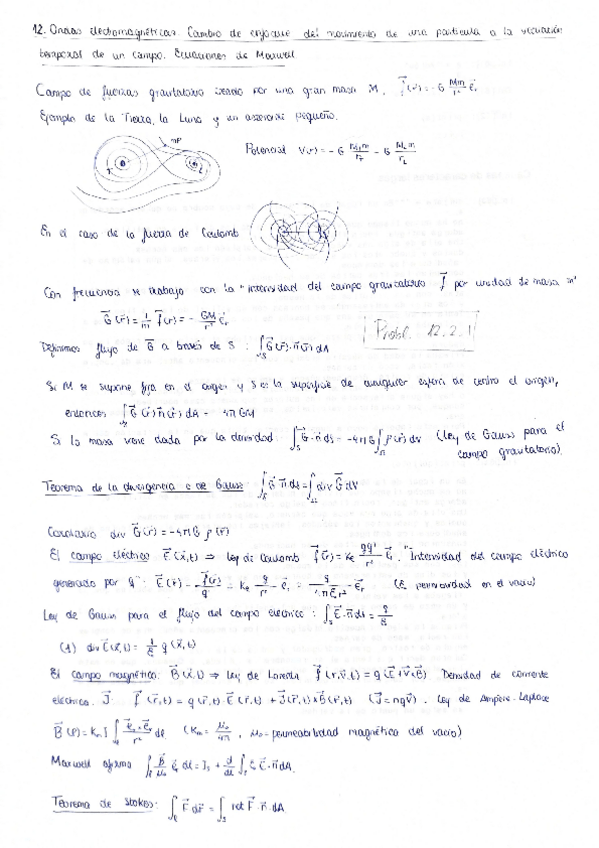 12. Ondas electromagnéticas. Cambio de enfoque del movimiento de una partícula a la ecuación
temporal de un campo. Ecuaciones de Maxwell.
Campo de fuerzas gravitatorio creado por una gran masa M. f⃗(r⃗) = -G Mm/r² e⃗r
Ejemplo de la Tierra, la Luna y un asteroide pequeño.
Potencial V(r) = -G
En el caso de la fuerza de Coulomb
Con frecuencia se trabaja con la "intensidad del campo gravitatorio f⃗ por unidad de masa m"
G⃗(r⃗) = 1/m f⃗(r) = - GM/r² e⃗r
Probl. 12.2.1
Definimos flujo de G⃗ a través de S: ∫_S G⃗(r⃗)·n⃗(r⃗) dA
Si M se supone fija en el origen y S es la superficie de cualquier esfera de centro el origen,
entonces ∫_S G⃗(r⃗) n⃗(r⃗) dA = -4πGM
Si la masa viene dada por la densidad ∫_S G⃗·n⃗ ds = -4πG ∫_Ω ρ(r⃗) dV (Ley de Gauss para el
campo gravitatorio).
Teorema de la divergencia o de Gauss ∫_S G⃗ n⃗ ds = ∫_Ω div G⃗ dV
Corolario div G⃗(r⃗) = -4πG ρ(r⃗)
El campo eléctrico E⃗(x⃗,t) ⇒ Ley de Coulomb f⃗(r⃗) = Ke qq'/r² e⃗r. "Intensidad del campo eléctrico
generado por q": E⃗(r⃗) = f⃗(r⃗)/q' = Ke q/r² e⃗r = q/4πξr² e⃗r (ξ permitividad en el vacío)
Ley de Gauss para el flujo del campo eléctrico: ∫_S E⃗·n⃗ ds = q/ξ
(1) div E⃗(x⃗,t) = 1/ξ q(x⃗,t)
El campo magnético: B⃗(x⃗,t) ⇒ Ley de Lorentz f⃗(r⃗,v⃗,t) = q(E⃗+v⃗×B⃗) Densidad de corriente
eléctrica. J⃗: f⃗(r⃗,t) = q(r⃗,t) E⃗(r⃗,t) + J⃗(r⃗,t)×B⃗(r⃗,t) (J⃗=nqv⃗). Ley de Ampère-Laplace
B⃗(P) = Km I ∫ e⃗t×e⃗r/r² dl (Km = μ₀/4π, μ₀-permeabilidad magnética del vacío)
Maxwell afirma ∫ B⃗/μ₀ e⃗t dl = Is + d/dt ∫_S ξ E⃗·n⃗ dA.
Teorema de Stokes: ∫ F⃗ dr⃗ = ∫_S rot F⃗·n⃗ dA